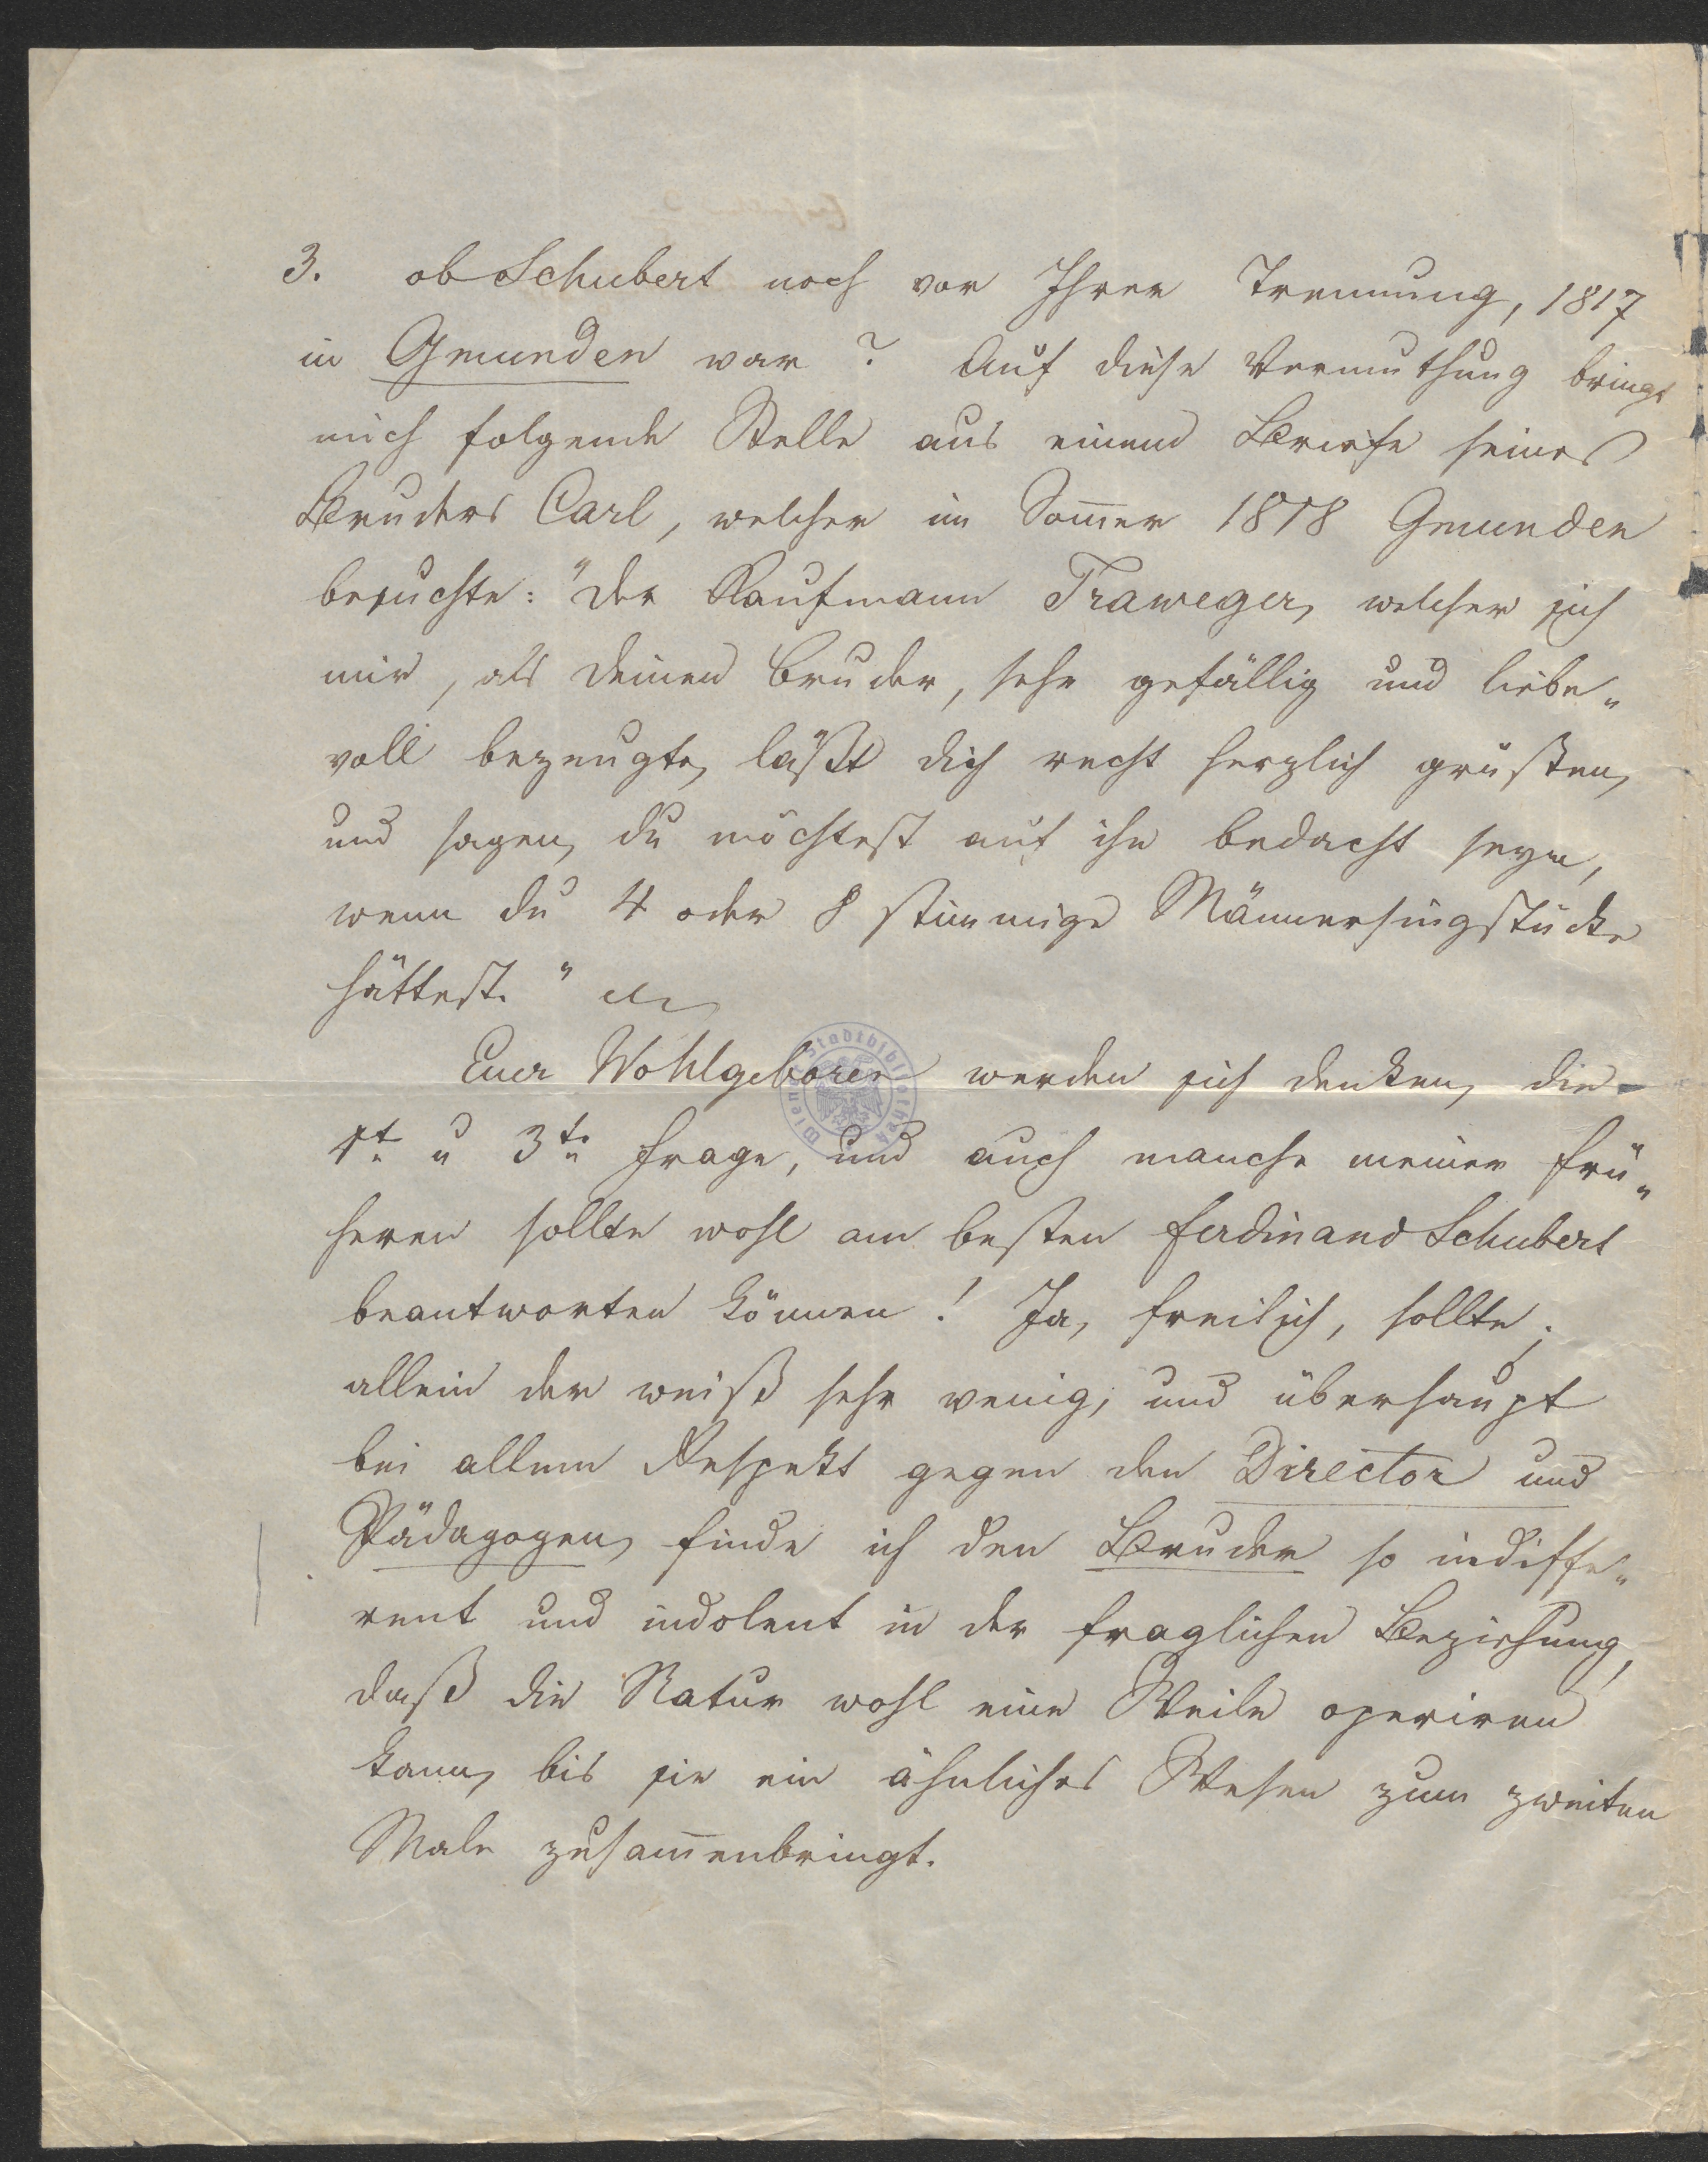 3. ob Schubert noch vor Ihrer Trennung, 1817
in Gmunden war? Auf diese Vermuthung bringt
mich folgende Stelle aus einem Briefe seines
Bruders Carl, welcher im Som̅er 1818 Gmunden
besuchte: "Der Kaufmann Traweger, welcher sich
mir, als deinem Bruder, sehr gefällig und liebe„
voll bezeugte, läßt dich recht herzlich grüßen,
und sagen, du möchtest auf ihn bedacht seyn,
wenn du 4 oder 8 stimmige Männersingstücke
hättest."
Euer Wohlgeboren werden sich denken, die
1te u 3te Frage, und auch manche meiner frü„
heren sollte wohl am besten Ferdinand Schubert
beantworten können! Ja, freilich, sollte;
allein der weiß sehr wenig, und überhaupt
bei allem Respekt gegen den Director und
Pädagogen, finde ich den Bruder so indiffe„
rent und indolent in der fraglichen Beziehung,
daß die Natur wohl eine Weile operiren
kann, bis sie ein ähnliches Wesen zum zweiten
Male zusam̅enbringt.
Wiener Stadtbibliothek